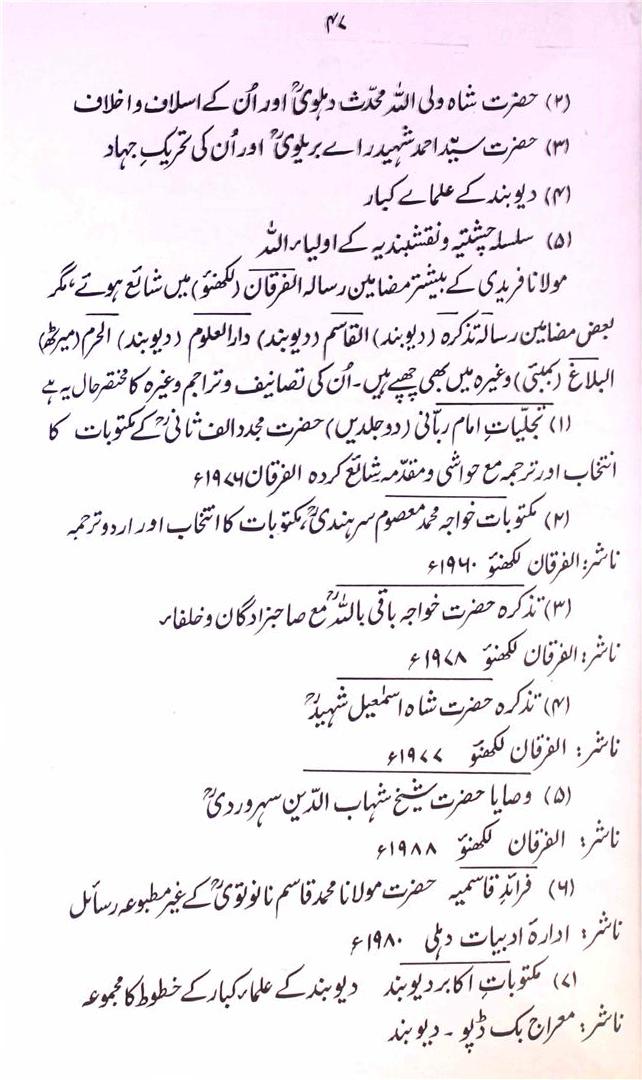 ۴۷
(۲) حضرت شاہ ولی اللہ محدّث دہلویؒ اور اُن کے اسلاف و اخلاف
(۳) حضرت سیّد احمد شہید راے بریلویؒ اور اُن کی تحریکِ جہاد
(۴) دیوبند کے علماے کبار
(۵) سلسلہ چشتیہ و نقشبندیہ کے اولیاء اللہ
مولانا فریدی کے بیشتر مضامین رسالہ الفرقان (لکھنؤ) میں شائع ہوئے، مگر
بعض مضامین رسالہ تذکرہ (دیوبند) القاسم (دیوبند) دارالعلوم (دیوبند) الحرم (میرٹھ)
البلاغ (بمبئی) وغیرہ میں بھی چھپے ہیں۔ اُن کی تصانیف و تراجم وغیرہ کا مختصر حال یہ ہے
(۱) تجلّیاتِ امام ربّانی (دو جلدیں) حضرت مجدد الف ثانیؒ کے مکتوبات کا
انتخاب اور ترجمہ مع حواشی و مقدّمہ شائع کردہ الفرقان ۱۹۷۶ء
(۲) مکتوبات خواجہ محمد معصوم سرہندیؒ، مکتوبات کا انتخاب اور اردو ترجمہ
ناشر: الفرقان لکھنؤ ۱۹۶۰ء
(۳) تذکرہ حضرت خواجہ باقی باللہؒ مع صاحبزادگان و خلفاء
ناشر: الفرقان لکھنؤ ۱۹۷۸ء
(۴) تذکرہ حضرت شاہ اسمٰعیل شہیدؒ
ناشر: الفرقان لکھنؤ ۱۹۷۷ء
(۵) وصایا حضرت شیخ شہاب الدّین سہروردیؒ
ناشر: الفرقان لکھنؤ ۱۹۸۸ء
(۶) فرائدِ قاسمیہ حضرت مولانا محمد قاسم نانوتویؒ کے غیر مطبوعہ رسائل
ناشر: ادارۂ ادبیات دہلی ۱۹۸۰ء
(۷) مکتوباتِ اکابر دیوبند دیوبند کے علماء کبار کے خطوط کا مجموعہ
ناشر: معراج بک ڈپو ۔ دیوبند